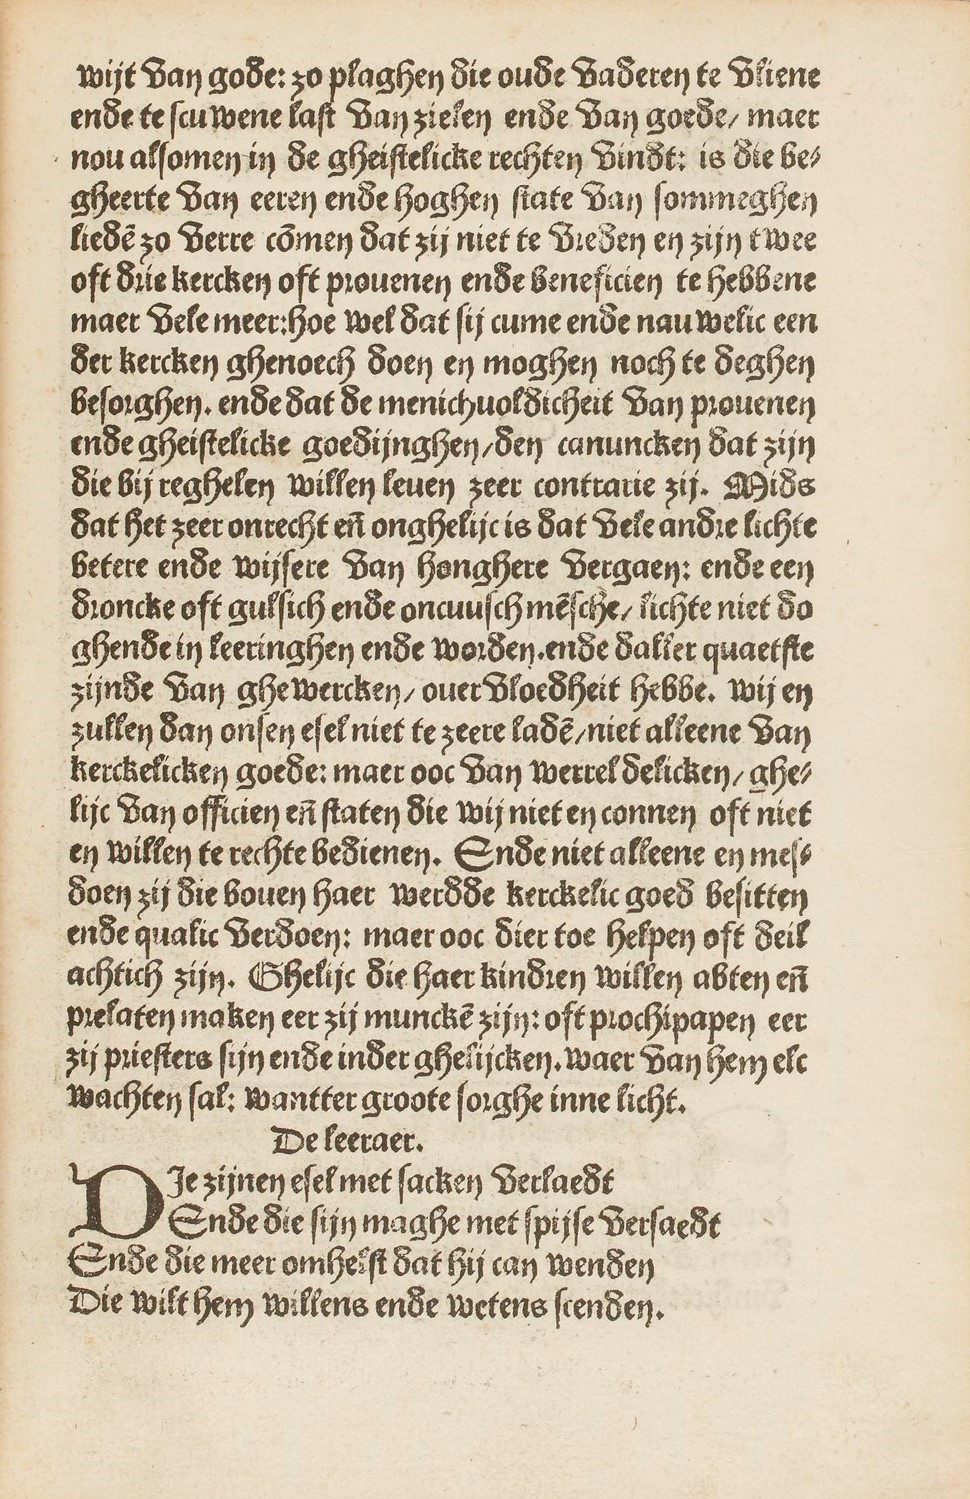 wijt van gode: zo plaghen die oude vaderen te vliene
ende te scuwene last van zielen ende van goede/ maer
nou alsomen in de gheistelicke rechten vindt: is die be⸗
gheerte van eeren ende hoghen state van sommeghen
liedē zo verre cōmen dat zij niet te vreden en zijn twee
oft drie kercken oft prouenen ende beneficien te hebbene
maer vele meer:hoe wel dat sij cume ende nauwelic een
der kercken ghenoech doen en moghen noch te deghen
besorghen. ende dat de menichuoldicheit van prouenen
ende gheistelicke goedijnghen/den canuncken dat zijn
die bij reghelen willen leuen zeer contrarie zij. Mids
dat het zeer onrecht en̄ onghelijc is dat vele andre lichte
betere ende wijsere van honghere vergaen: ende een
droncke oft gulsich ende oncuusch mēsche/ lichte niet do
ghende in leeringhen ende worden.ende daller quaetste
zijnde van ghewercken/ ouervloedheit hebbe. wij en
zullen dan onsen esel niet te zeere ladē/niet alleene van
kerckelicken goede: maer ooc van werreldelicken/ ghe⸗
lijc van officien en̄ staten die wij niet en connen oft niet
en willen te rechte bedienen. Ende niet alleene en mes⸗
doen zij die bouen haer werdde kerckelic goed besitten
ende qualic verdoen: maer ooc dier toe helpen oft deil
achtich zijn. Ghelijc die haer kindren willen abten en̄
prelaten maken eer zij munckē zijn: oft prochipapen eer
zij priesters sijn ende inder ghelijcken.waer van hem elc
wachten sal: wantter groote sorghe inne licht.
De leeraer.
DIe zijnen esel met sacken verlaedt
Ende die sijn maghe met spijse versaedt
Ende die meer omhelst dat hij can wenden
Die wilt hem willens ende wetens scenden.